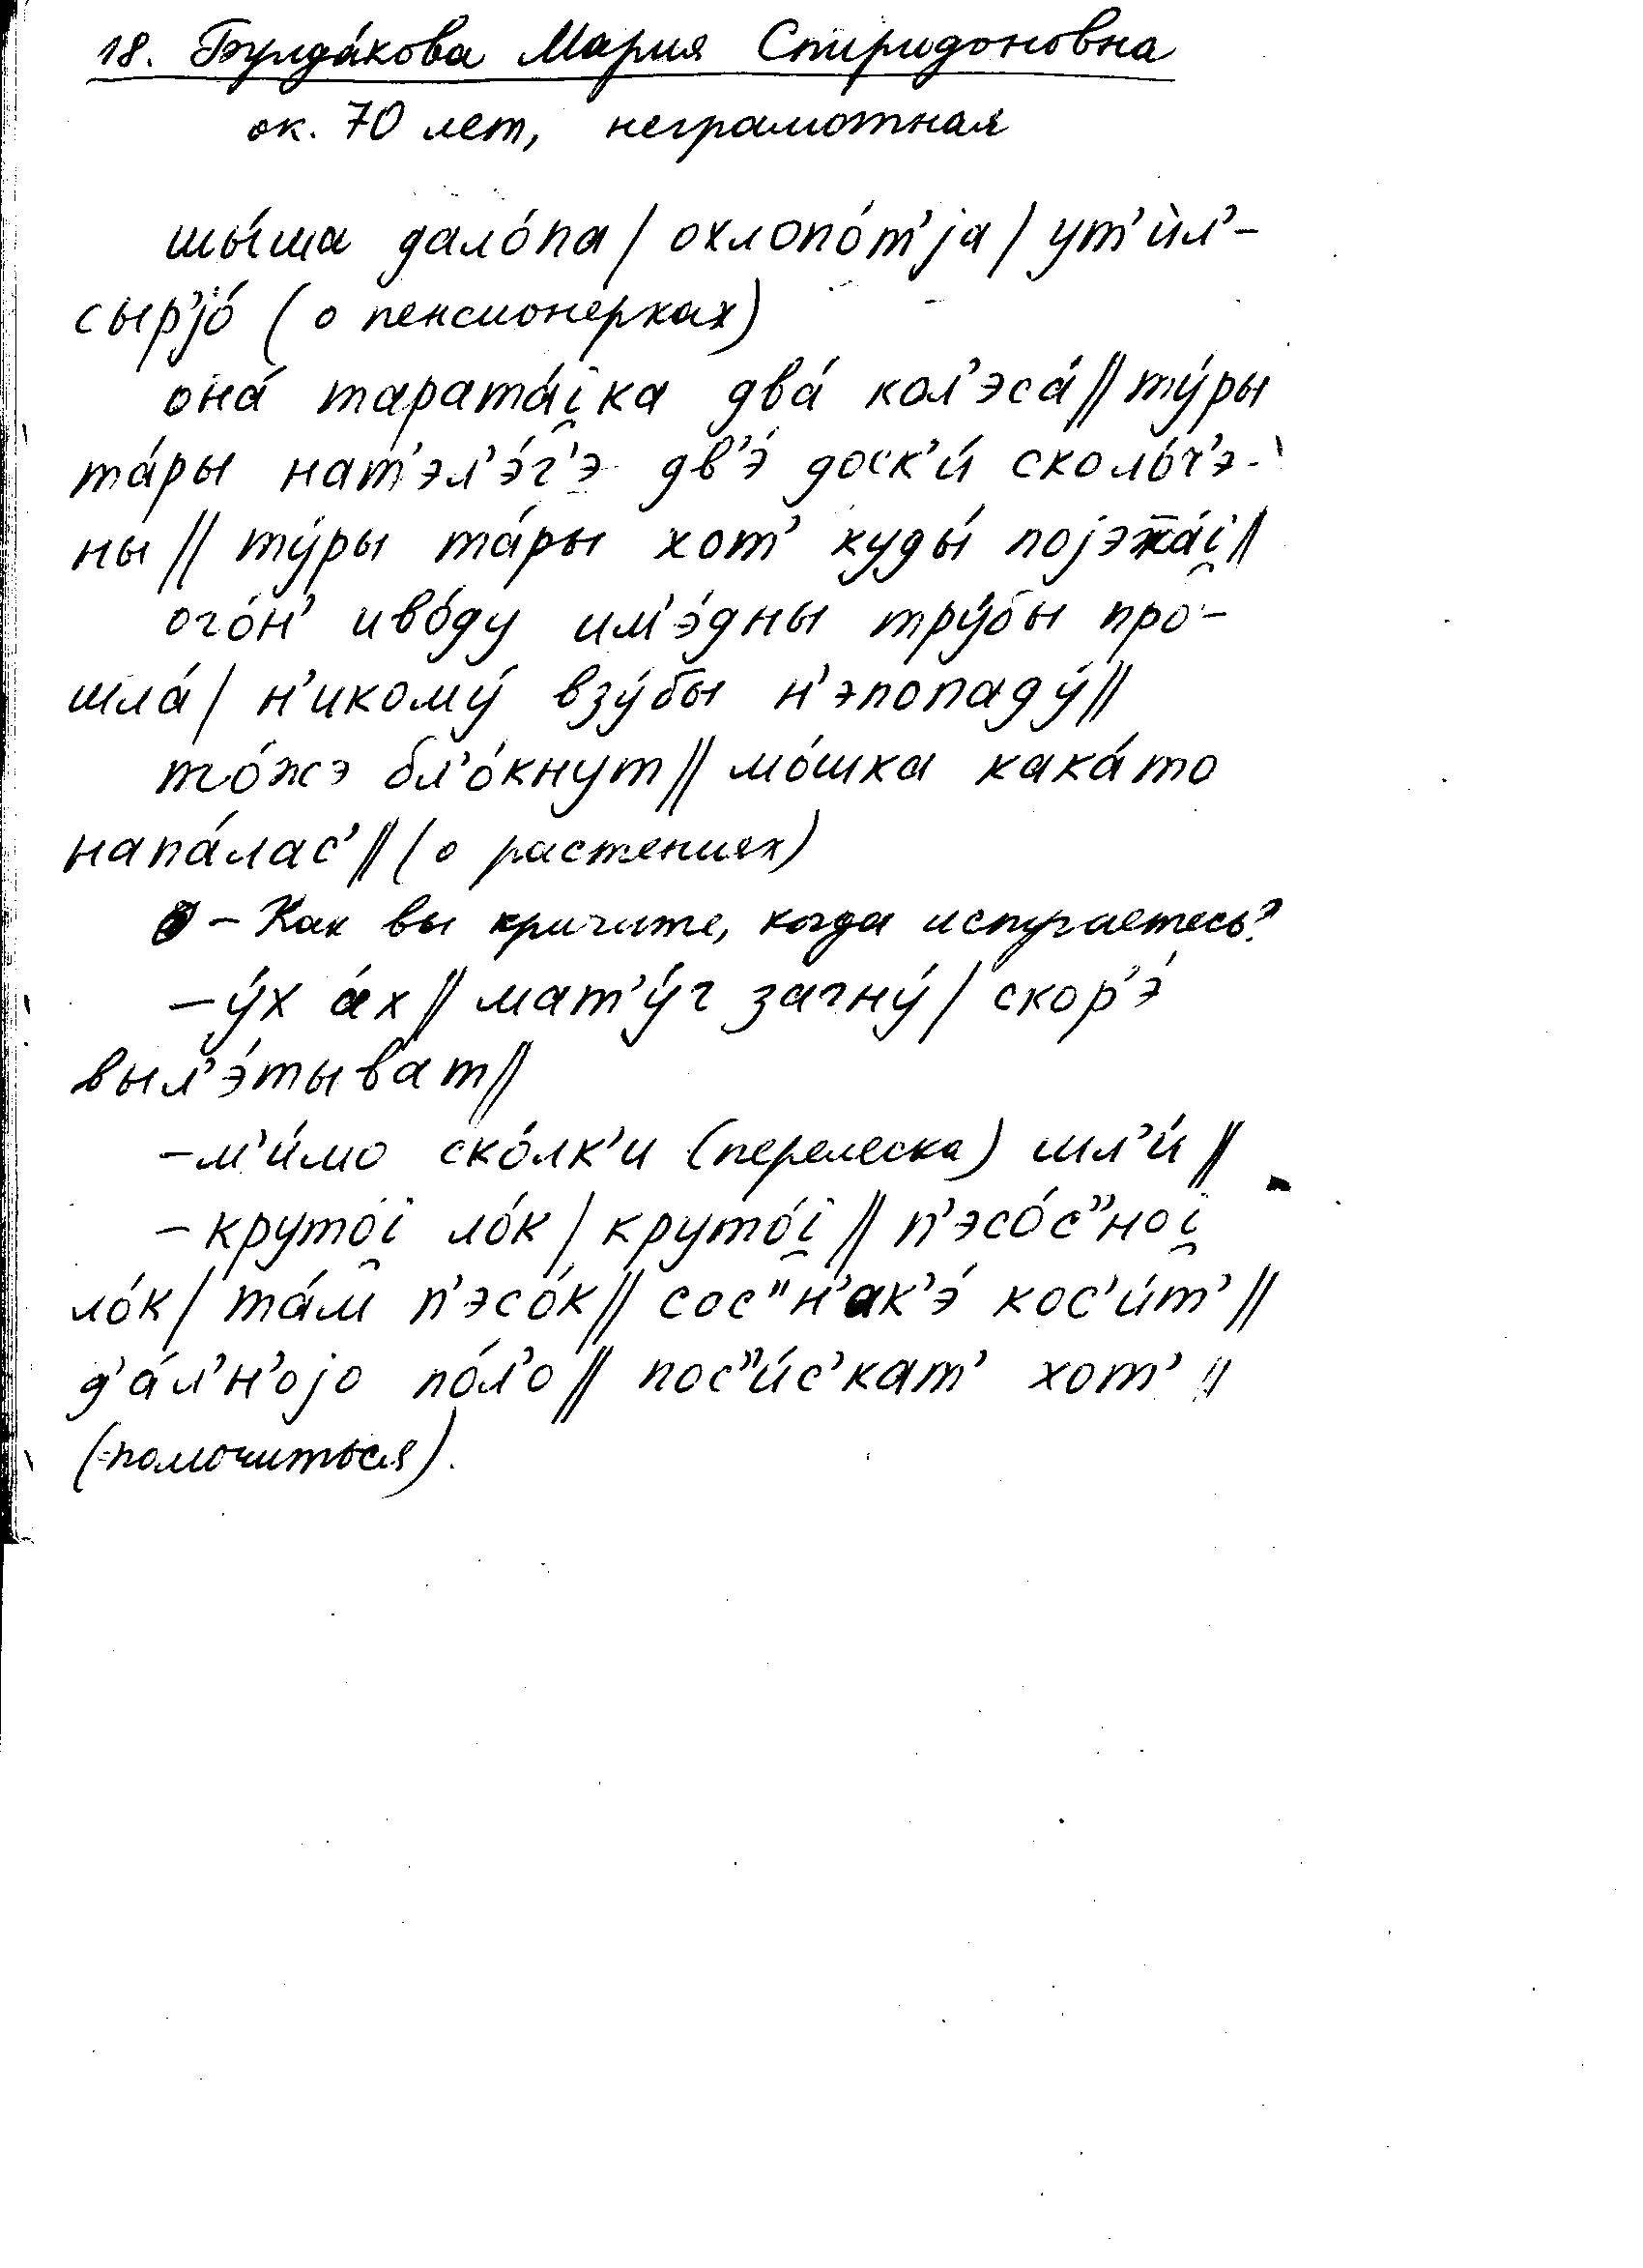 18. Булда́кова Мария Спиридоновна
ок. 70 лет, неграмотная
шы́ша дало́па / охлопо́т'jа / ут'и́л'-
сыр'jо́ (о пенсионерках)
она́ тарата́i̯ка два́ кол'эса́ // ту́ры
та́ры нат'эл'э́г'э дв'э́ доск'и́ сколо́ч'э-
ны // ту́ры та́ры хот' куды́ поjэжа́i̯ //
ого́н' иво́ду им'э́дны тру́бы про-
шла́ / н'икому́ взу́бы н'эпопаду́ //
то́жэ бл'о́кнут // мо́шка кака́то
напа́лас' // (о растениях)
– Как вы кричите, когда испугаетесь?
– у́х а́х // мат'у́г загну́ / скор'э́
выл'э́тыват //
– м'и́мо ско́лк'и (перелеска) шл'и́ //
– крутоi̯ ло́к / круто́i̯ // п'эсо́с"ноi̯
ло́к / та́м п'эсо́к // сос"н'ак'э́ кос'и́т' //
д'а́л'н'оjо по́л'о // пос"и́с'кат' хот' //
(помочиться).